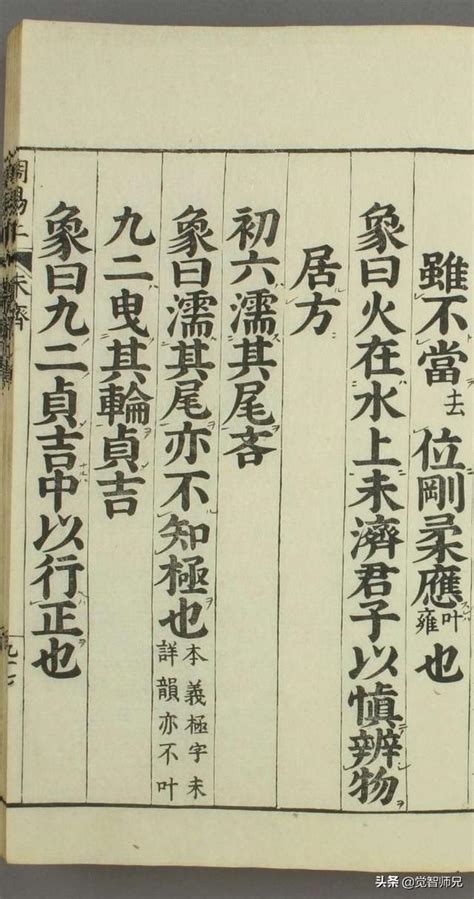 雖不當去位剛柔應叶雍也
象曰火在水上未濟君子以慎辨物
居方
初六濡其尾吝
象曰濡其尾亦不知極也本義極字未詳韻亦不叶
九二曳其輪貞吉
象曰九二貞吉中以行正也
未濟
头条 @觉智师兄